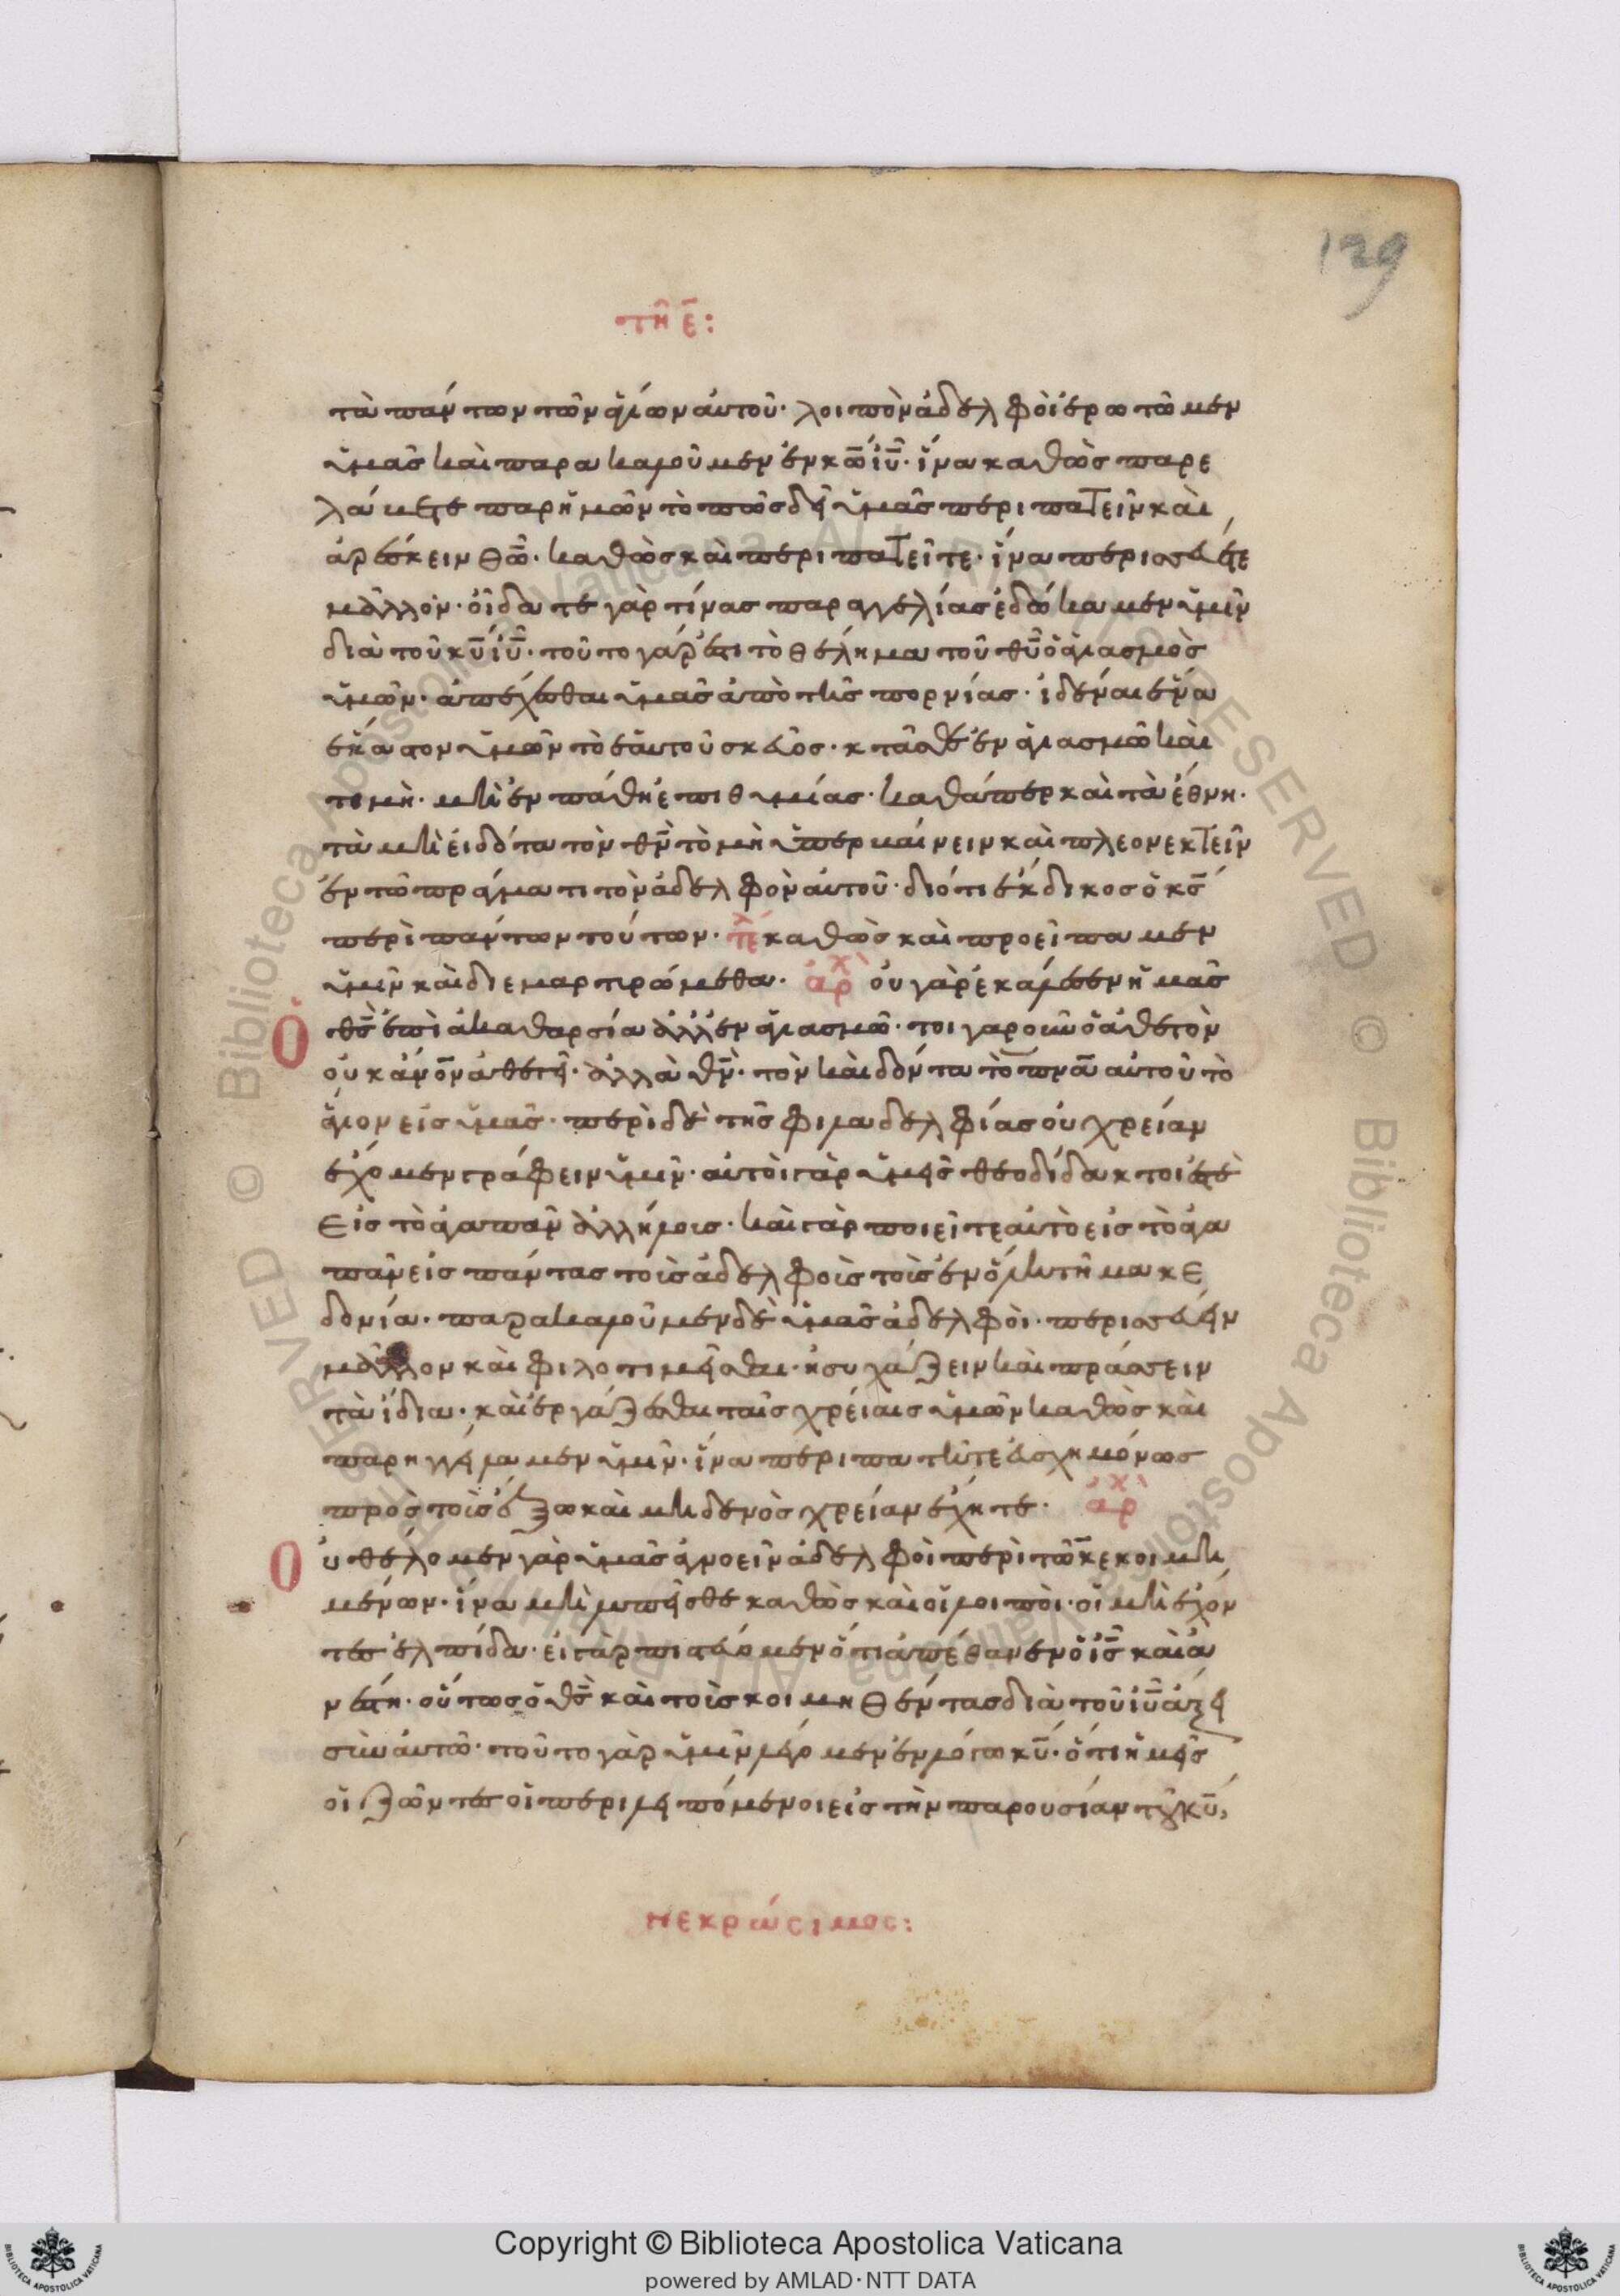 129
τῆ ε̄:
τὰ πάντων τῶν ἁγίων ἀυτοῦ· λοιπὸν ἀδελφοὶ ἐρωτῶμεν
ὑμᾶς καὶ παρακαλοῦμεν ἐν κ̅ω̅ ι̅υ̅· ἵνα καθὼς παρε
λάβετε παρ ἡμῶν τὸ πῶς δεῖ ὑμᾶς περιπατεῖν καὶ
ἀρέσκειν θ̅ω̅· καθὼς καὶ περιπατεῖτε· ἵνα περισσεύετε
μᾶλλον· οἴδατε γὰρ τίνας παραγγελίας ἐδώκαμεν ὑμῖν
διὰ τοῦ κ̅υ̅ ι̅υ̅· τοῦτο γάρ ἐστι τὸ θέλημα τοῦ θ̅υ̅ ὁ ἁγιασμὸς
ὑμῶν· ἀπέχεσθαι ὑμᾶς ἀπὸ τῆς πορνίας· ἰδέναι ἕνα
ἕκαστον ὑμῶν τὸ ἑαυτοῦ σκεῦος· κτᾶσθε ἐν ἁγιασμῶ καὶ
τιμῆ· μὴ ἐν πάθη ἐπιθυμίας· καθάπερ καὶ τὰ ἔθνη·
τὰ μὴ ἐιδότα τὸν θ̅ν̅ τὸ μὴ ὑπερβαίνειν καὶ πλεονεκτεῖν
ἐν τῶ πράγματι τὸν ἀδελφὸν ἀυτοῦ· διότι ἔκδικος ὁ κ̅ς̅
περὶ πάντων τούτων· τε̅λ καθὼς καὶ προείπαμεν
ὑμῖν καὶ διεμαρτιρώμεθα· ἀρχ ὀυ γὰρ ἐκάλεσεν ἡμᾶς
Ὁ θ̅ς̅ ἐπὶ ἀκαθαρσία ἀλλ ἐν ἁγιασμῶ· τοιγαροῦν ὁ ἀθετὸν
ὀυκ ἄν̅ο̅ν̅ ἀθετεῖ· ἀλλὰ θ̅ν̅· τὸν καὶ δόντα τὸ π̅ν̅α̅ ἀυτοῦ τὸ
ἅγιον εἰς ὑμᾶς· περὶ δὲ τῆς φιλαδελφίας ὀυ χρείαν
ἔχομεν γράφειν ὑμῖν· ἀυτοὶ γὰρ ὑμεῖς θεοδίδακτοι ἐστὲ
Εἰς τὸ ἀγαπᾶν ἀλλήλοις· καὶ γὰρ ποιεῖτε ἀυτὸ εἰς τὸ ἀγα
πᾶν εἰς πάντας τοὶς ἀδελφοὶς τοὶς ἐν ὅλη τῆ μακε
δονία· παρακαλοῦμεν δὲ ὑμᾶς ἀδελφὸι· περισσεύειν
μᾶλλον καὶ φιλοτιμεῖσθαι· ἡσυχάζειν καὶ πράσσειν
τὰ ἴδια· καὶ ἐργάζεσθαι ταῖς χρείαις ὑμῶν καθὼς καὶ
παρηγγείλαμεν ὑμῖν· ἵνα περιπατῆτε ἐυσχημόνως
πρὸς τοὶς ἔξω καὶ μηδενὸς χρείαν ἔχητε· ἀρχ
Ὀυ θέλομεν γὰρ ὑμᾶς ἀγνοεῖν ἀδελφοὶ περὶ τῶν κεκοιμη
μένων· ἵνα μὴ λυπεῖσθε καθὼς καὶ οἱ λοιποὶ· οἱ μὴ ἔχον
τες ἐλπίδα· εἰ γὰρ πιστεύομεν ὅτι ἀπέθανεν ὁ ι̅ς̅ καὶ ἀ
νέστη· οὕτως ὁ θ̅ς̅ καὶ τοὶς κοιμηθέντας διὰ τοῦ ι̅υ̅ ἄξει
σὺν ἀυτῶ· τοῦτο γὰρ ὑμῖν λέγομεν ἐν λόγω κ̅υ̅· ὅτι ἡμεῖς
οἱ ζῶντες οἱ περιλειπόμενοι εἰς τὴν παρουσίαν τοῦ κ̅υ̅,
νεκρώσιμος:
Copyright © Biblioteca Apostolica Vaticana
powered by AMLAD·NTT DATA